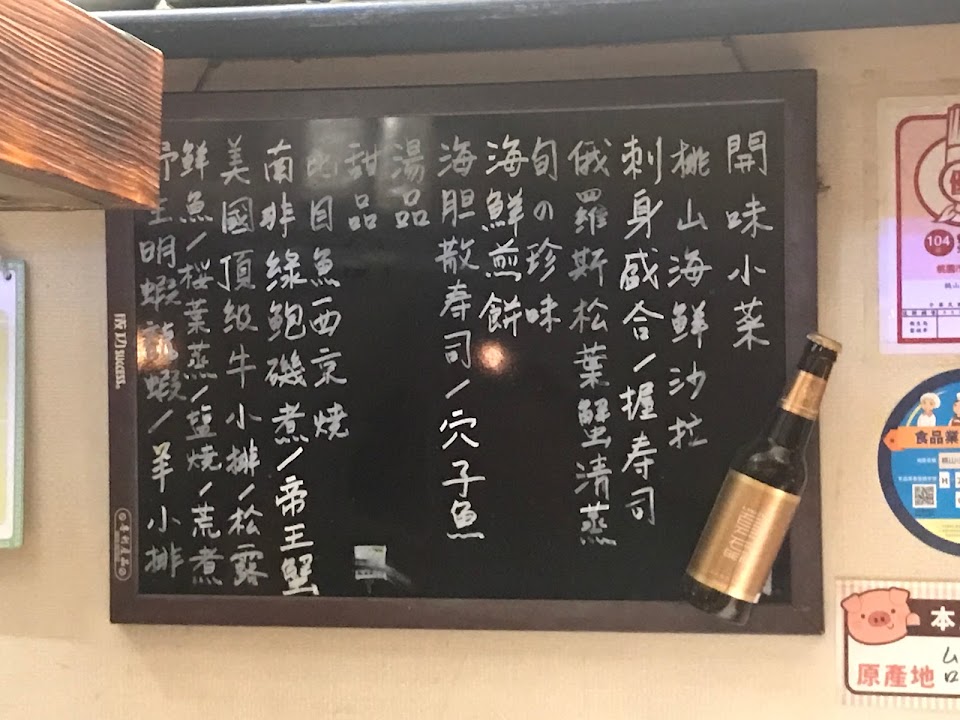 開味小菜
桃山海鮮沙拉
刺身盛合/握寿司
俄羅斯松葉蟹清蒸
旬の珍味
海鮮煎餅
海胆散寿司/穴子魚
湯品
甜品
比目魚西京燒
南非綠鮑磯煮/帝王蟹
美國頂級牛小排/松露
鮮魚/桜葉蒸/塩燒/荒煮
明蝦龍蝦/羊小排
SUCCESS
104
食品業
本
原產地